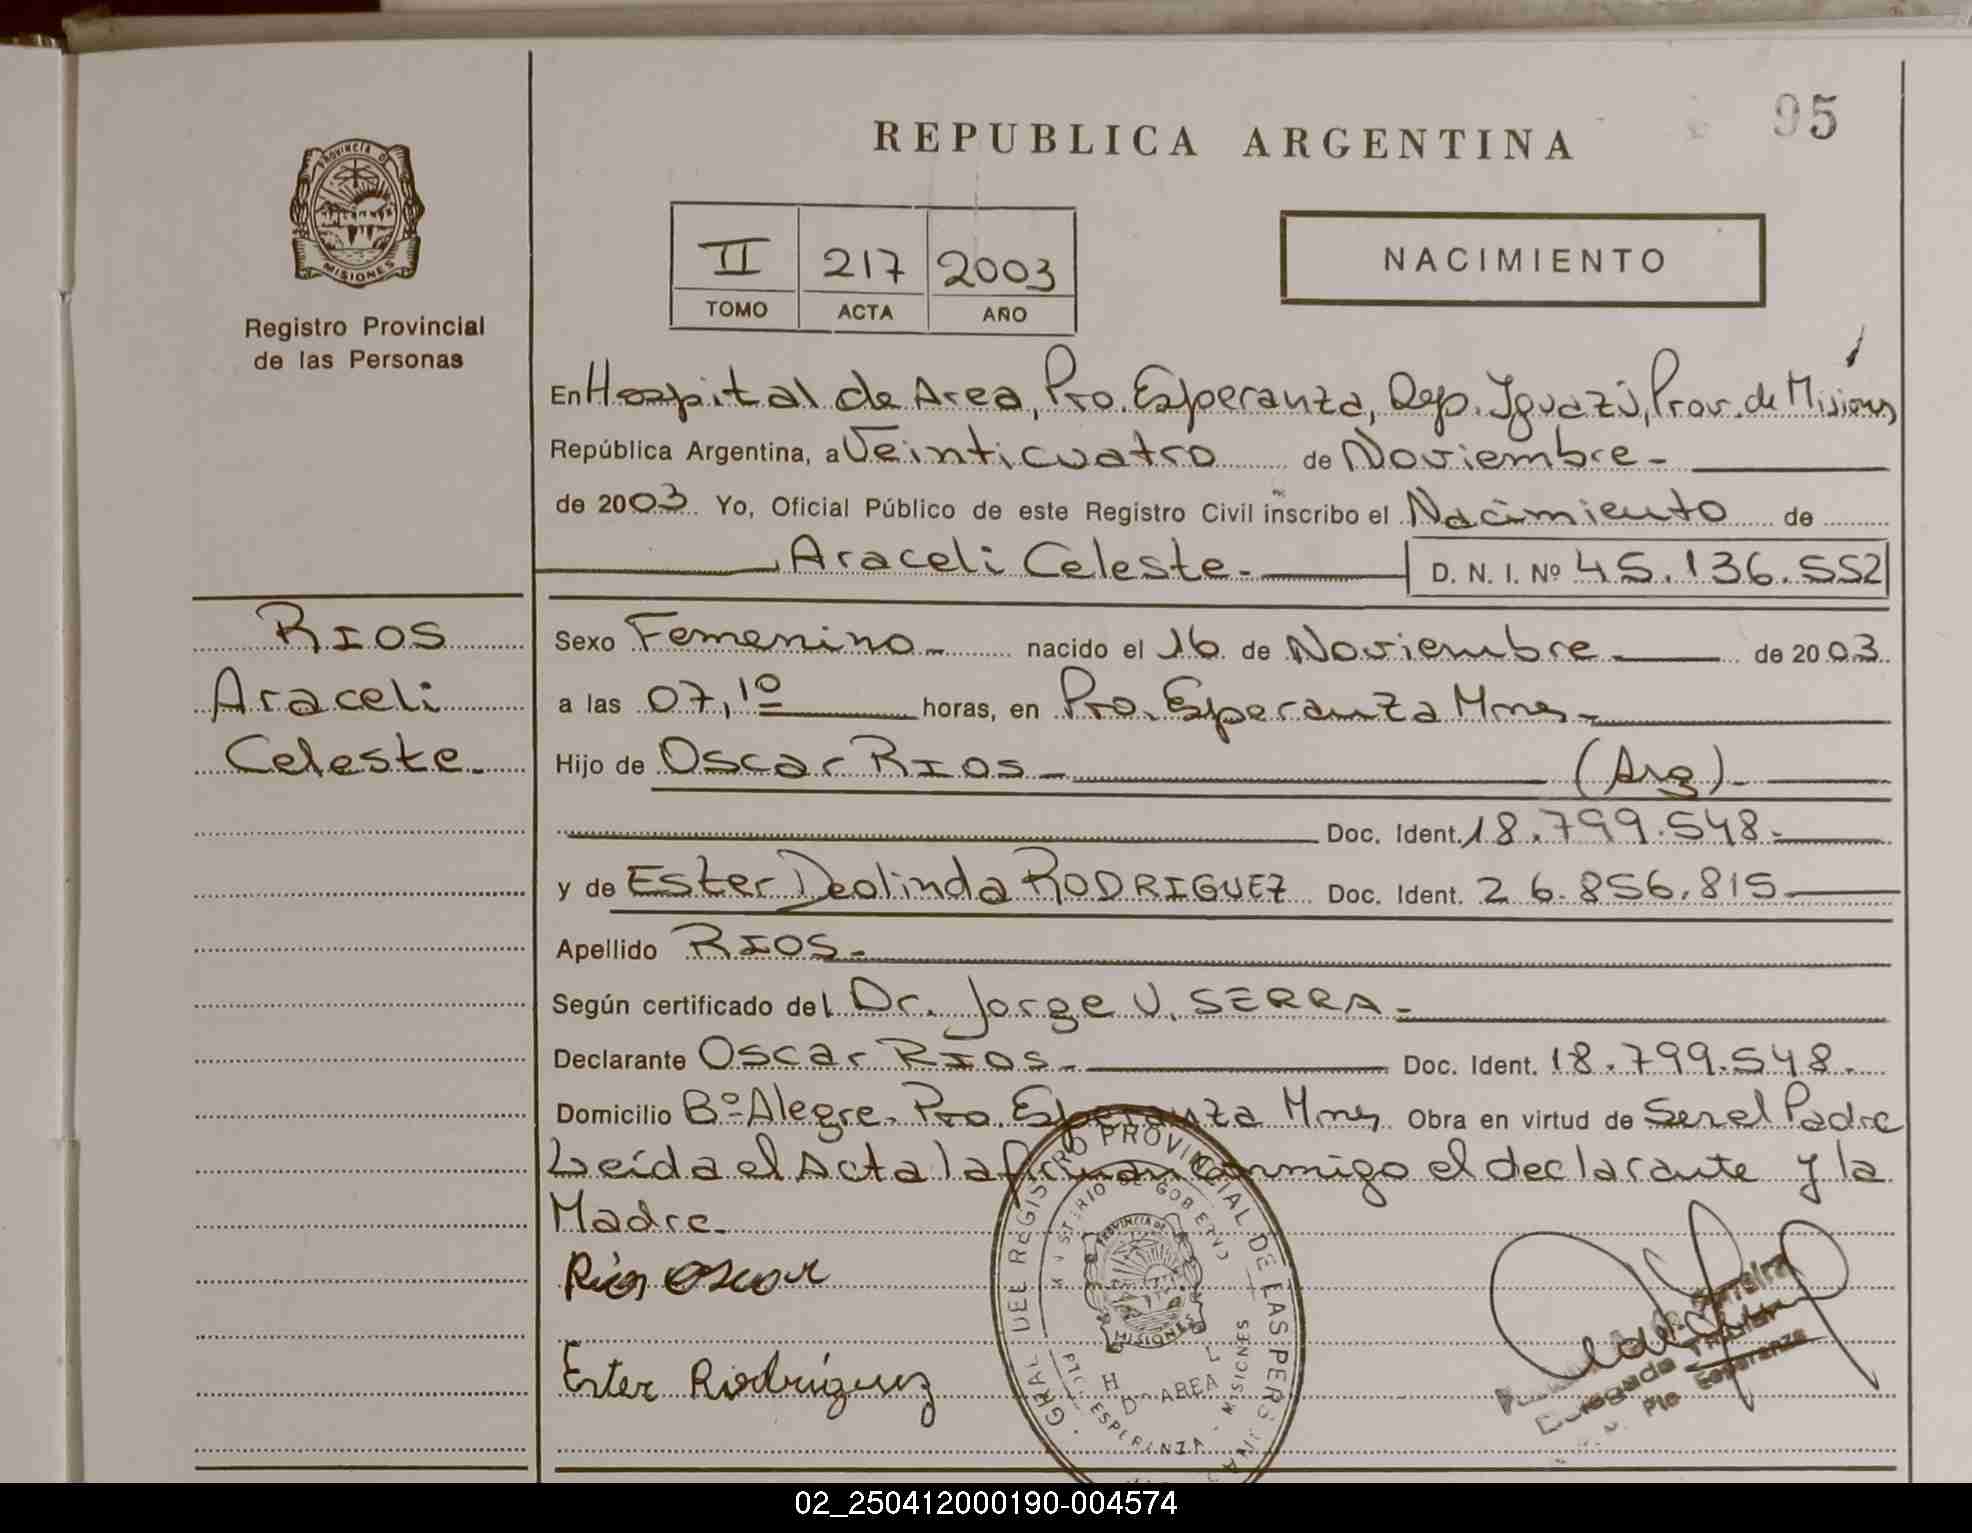 95
REPUBLICA ARGENTINA
PROVINCIA DE
MISIONES
Registro Provincial
de las Personas
II 217 2003
TOMO ACTA AÑO
NACIMIENTO
En Hospital de Area, Pto. Esperanza, Dep. Iguazú, Prov. de Misiones
República Argentina, a Veinticuatro de Noviembre-
de 2003 Yo, Oficial Público de este Registro Civil inscribo el Nacimiento de
Araceli Celeste- D. N. I. Nº 45.136.552
RIOS
Araceli
Celeste-
Sexo Femenino- nacido el 16 de Noviembre de 2003
a las 07,10 horas, en Pto. Esperanza Mnes-
Hijo de Oscar RIOS- (Arg)-
Doc. Ident. 18.799.548-
y de Ester Deolinda RODRIGUEZ Doc. Ident. 26.856.815
Apellido RIOS-
Según certificado del Dr. Jorge V. SERRA-
Declarante Oscar RIOS- Doc. Ident. 18.799.548-
Domicilio Bº Alegre- Pto. Esperanza Mnes Obra en virtud de Ser el Padre
Leída el Acta la firman conmigo el declarante y la
Madre-
Rios Oscar
Ester Rodriguez
GRAL DEL REGISTRO PROVINCIAL DE LAS PERSONAS
MINISTERIO DE GOBIERNO
PROVINCIA DE
MISIONES
H DE AREA
PTO. ESPERANZA - MISIONES
Delegada Titular
Pto Esperanza
02_250412000190-004574